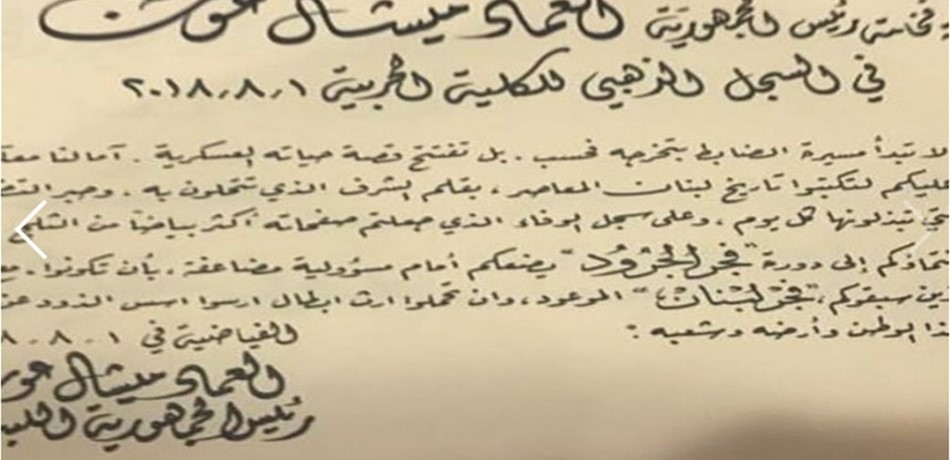 فخامة رئيس الجمهورية العماد ميشال عون
في السجل الذهبي للكلية الحربية ٢٠١٨،٨،١
لا تبدأ مسيرة الضابط بتخرجه فحسب . بل تفتتح قصة حياته العسكرية . آمالنا
عليكم لتكتبوا تاريخ لبنان المعاصر ، بقلم الشرف الذي تتحلون به . وحبر
تبذلونها كل يوم ، وعلى سجل الوفاء الذي جعلتم صفحاته أكثر بياضاً من الثلج
إلى دورة "فجر الجرود" يضعكم أمام مسؤولية مضاعفة . بأن تكونوا .
سبقوكم ، "فجر لبنان" الموعود ، وان تحملوا ارث ابطال ارسوا اسس الذود
الوطن وأرضه وشعبه .
الفياضية في ١ . ٨ . ٨
العماد ميشال
رئيس الجمهورية